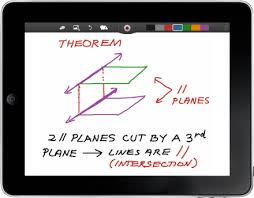 THEOREM
//
PLANES
2 // PLANES CUT BY A 3rd
PLANE → LINES ARE //
(INTERSECTION)